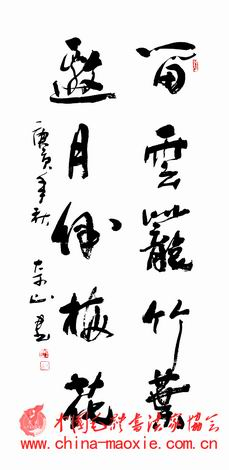 留雲籠竹葉
邀月伴梅花
庚寅年秋
中国毛体书法家协会
www.china-maoxie.com.cn